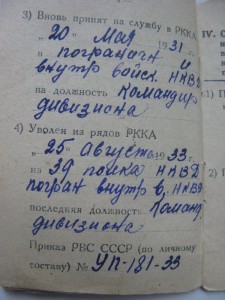 3) Вновь принят на службу в РККА
„20“ Мая 1931 г.
в погранич и
внутр войск. НКВД
на должность Командир
дивизиона
4) Уволен из рядов РККА
„25“ Августа 1933 г.
из 39 полка НКВД
погран внутр в. НКВД
последняя должность Команд
дивизиона
Приказ РВС СССР (по личному
составу) № УП-181-33
IV. С
1)
2)